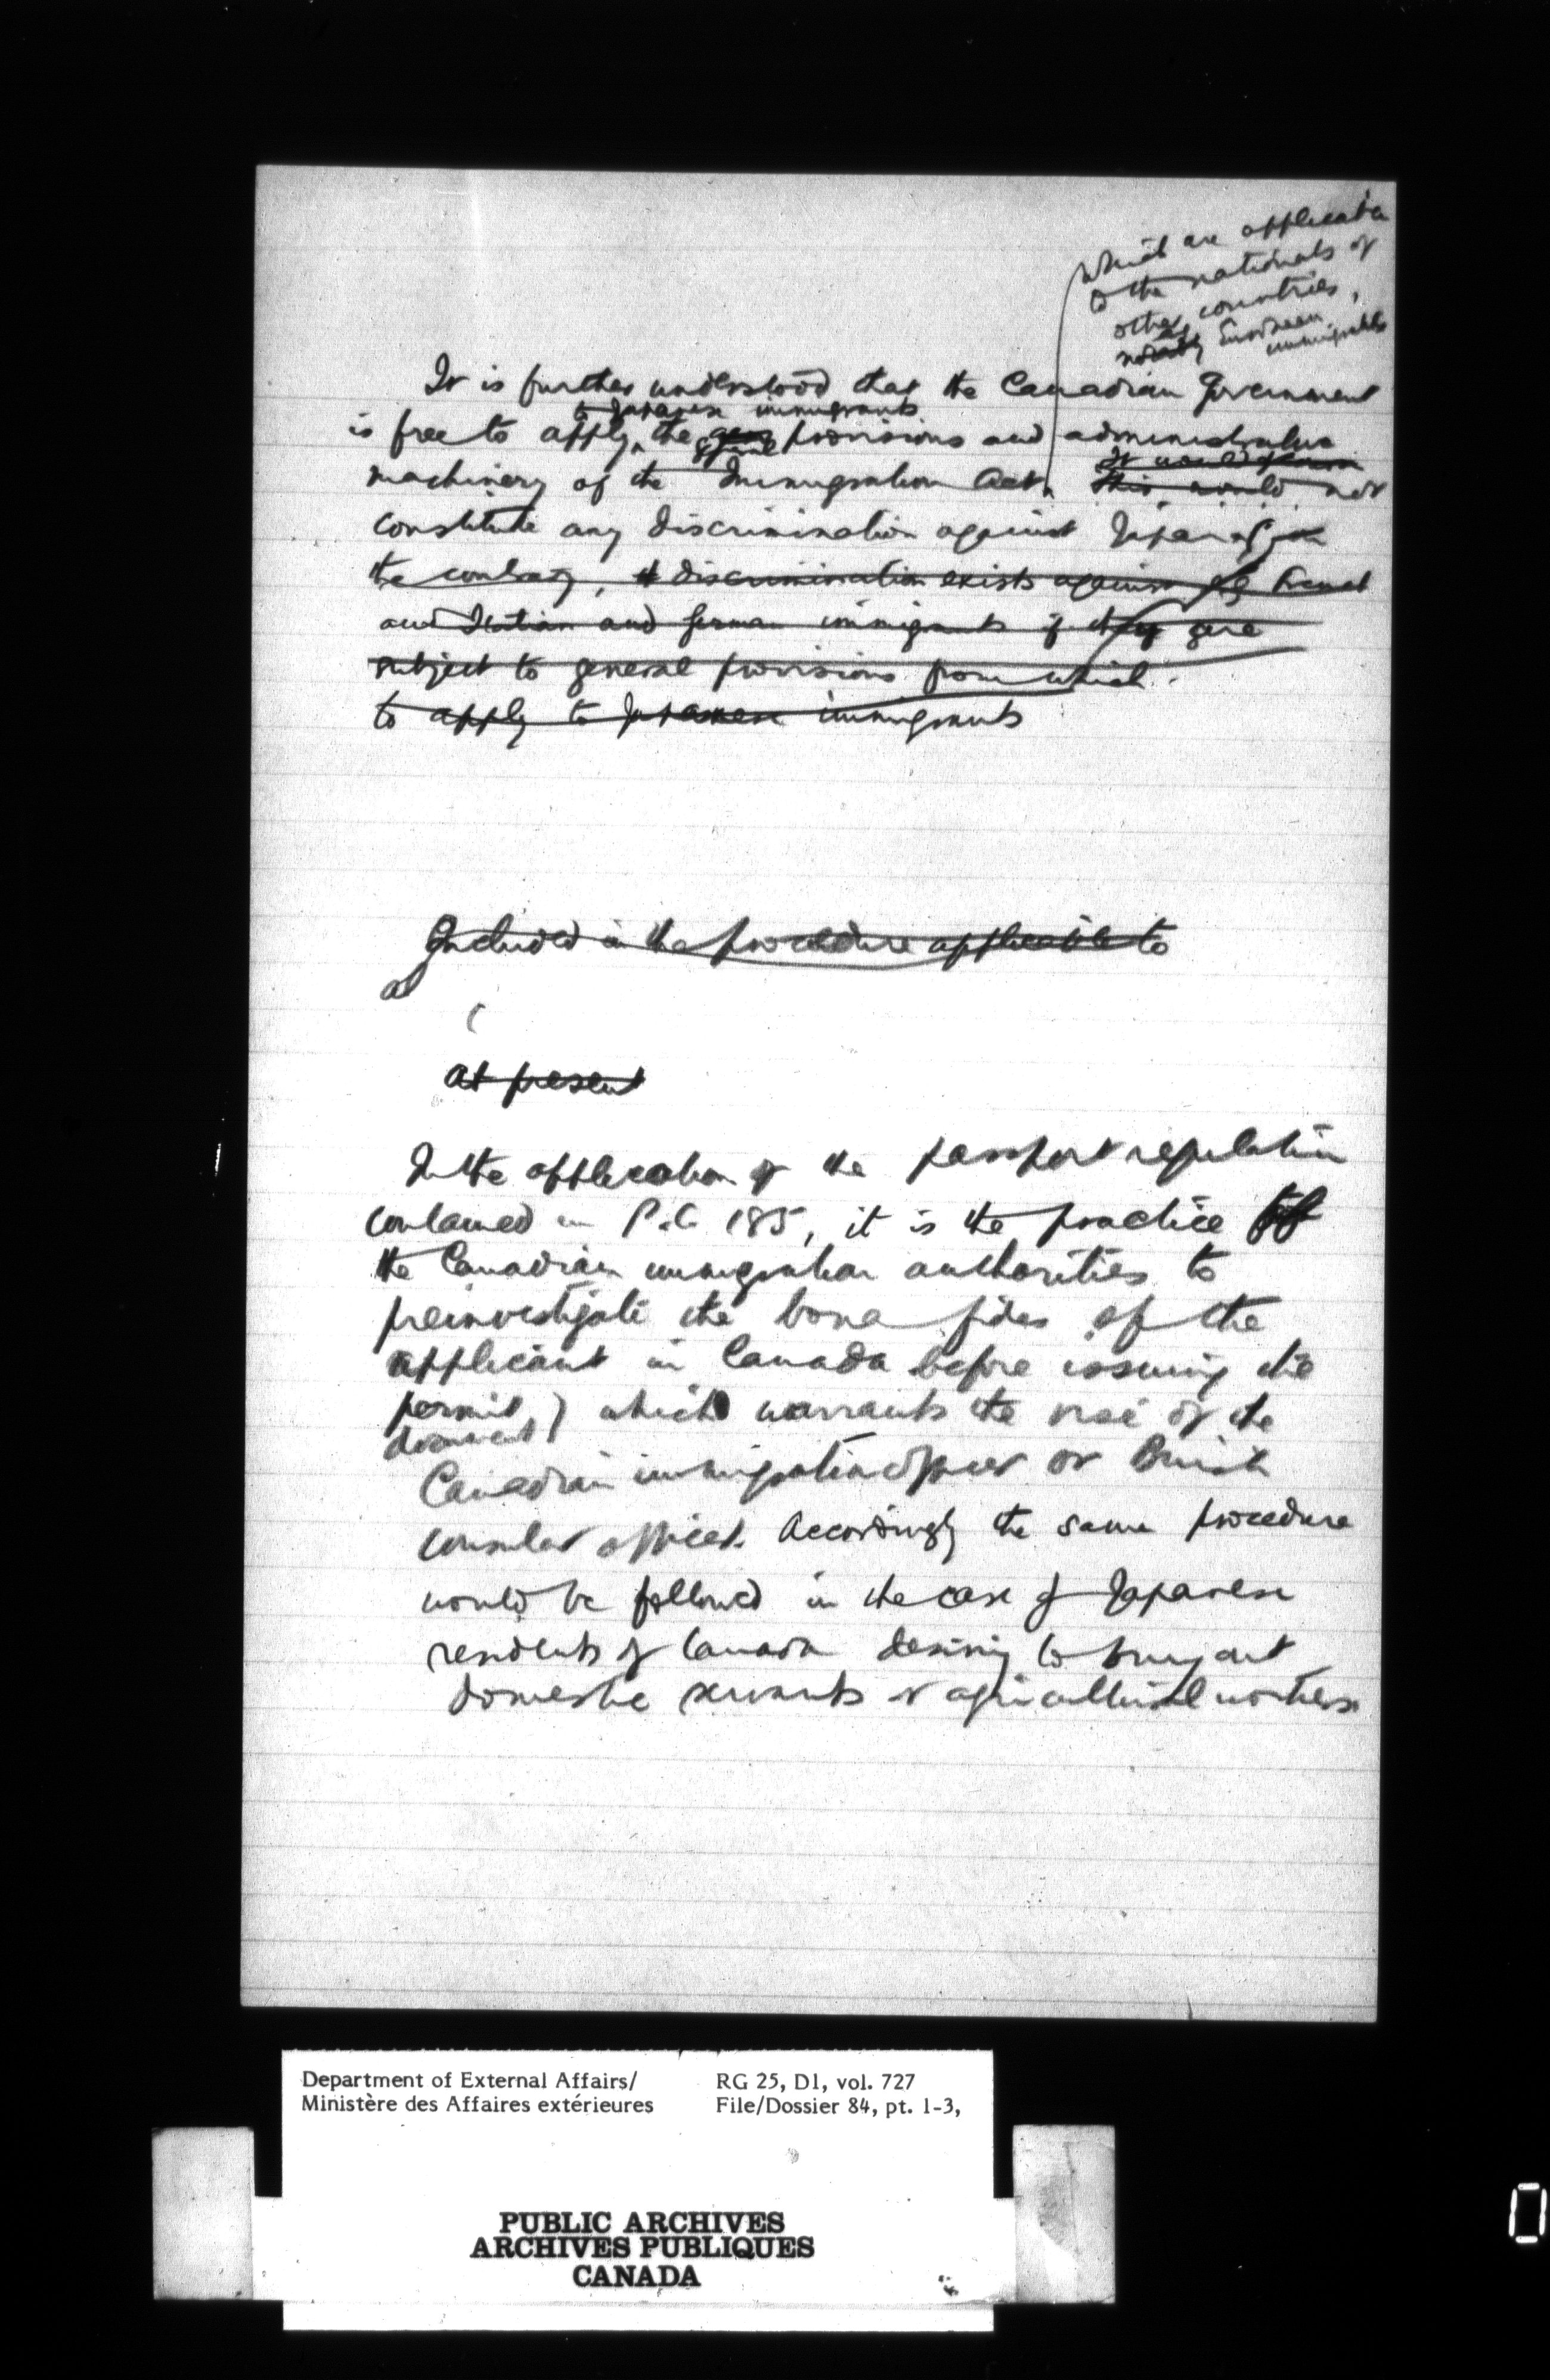 which are applicable
to the nationals of
other countries,
e.g. European
immigrants
It is further understood that the Canadian Government
to Japanese immigrants
is free to apply the general provisions and administrative
machinery of the Immigration Act. This would not
constitute any discrimination against Japan; on
the contrary, discrimination exists against French
and Italian and German immigrants if they are
subject to general provisions from which
to apply to Japanese immigrants
Included in the procedure applicable to
at present
In the application of the passport regulation
contained in P.C. 185, it is the practice of
the Canadian immigration authorities to
preinvestigate the bona fides of the
applicant in Canada before issuing the
permit, which warrants the visé of the
document
Canadian immigration officer or British
consular officer. Accordingly the same procedure
would be followed in the case of Japanese
residents of Canada desiring to bring out
domestic servants or agricultural workers
Department of External Affairs/ RG 25, D1, vol. 727
Ministère des Affaires extérieures File/Dossier 84, pt. 1-3,
PUBLIC ARCHIVES
ARCHIVES PUBLIQUES
CANADA